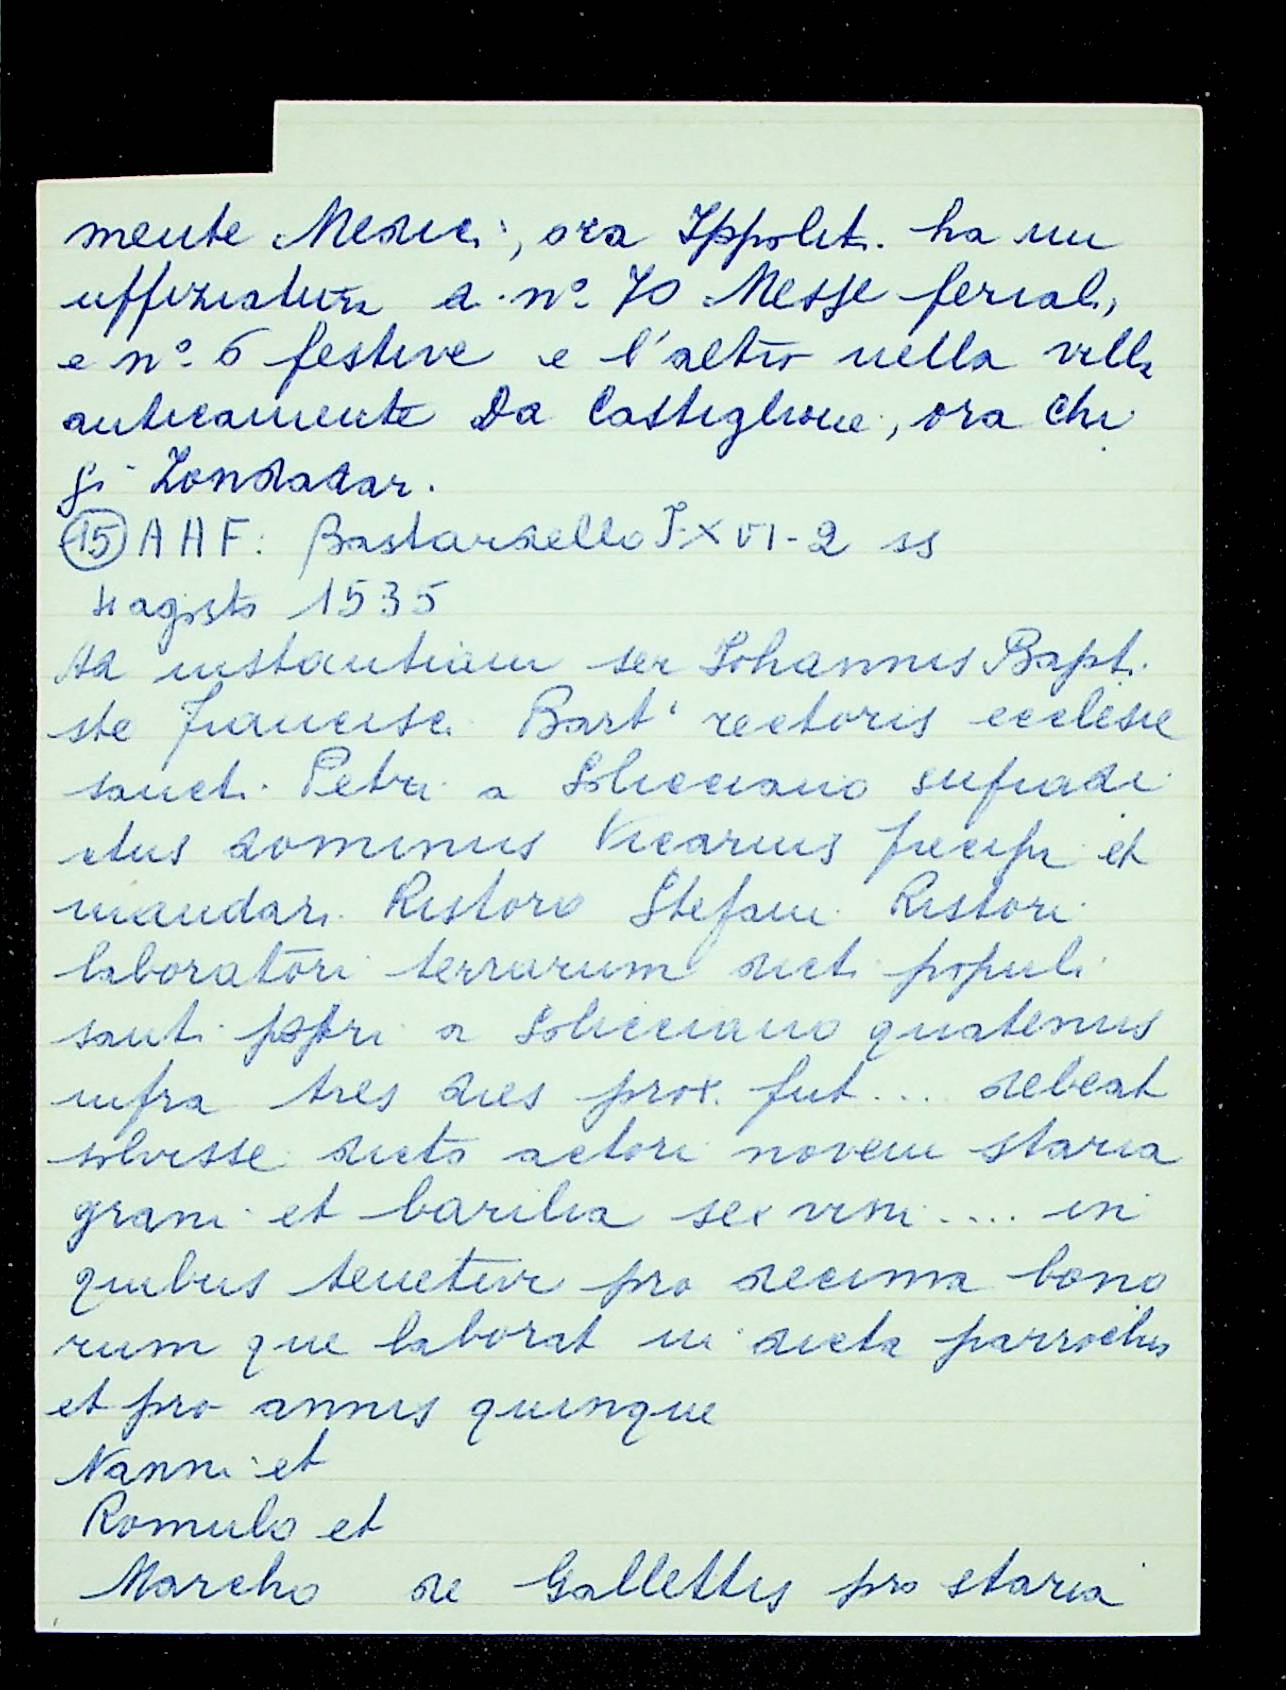 mente Medici, ora Ippoliti ha un
uffiziatura a n° 70 Messe feriali,
e n° 6 festive e l'altro nella villa
anticamente Da Castiglione, ora Chi
gi Zondadar.
(15) A A F: Bastardello I-XVI-2 ss
4 agosto 1535
Ad instantiam ser Johannis Bapti
ste Francisci Bart' rectoris ecclesie
sancti Petri a Soliccciano sufradi
ctus dominus Vicarius precepi et
mandari Ristoro Stefani Ristori
laboratori terrarum dicti populi
santi petri a Solicciano quatenus
infra tres dies prox. fut... debeat
solvisse dicto actori novem staria
grani et barilia sex vini .... in
quibus tenetur pro decima bono
rum que laborat in dicta parrochia
et pro annis quinque
Nanni et
Romulo et
Marcho de Gallettis pro staria